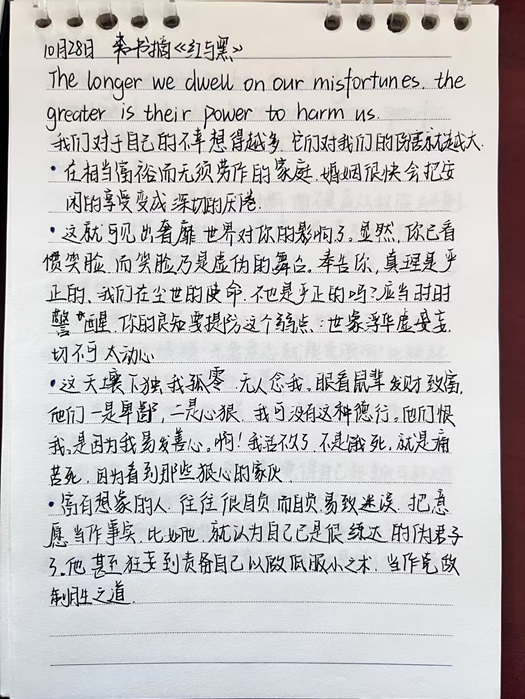 10月28日 书摘《红与黑》
The longer we dwell on our misfortunes. the
greater is their power to harm us.
我们对于自己的不幸想得越多.它们对我们的伤害就越大.
·在相当富裕而无须劳作的家庭.婚姻很快会把安
闲的享受变成深切的厌倦.
·这就可见出奢靡世界对你的影响了。显然,你已看
惯笑脸.而笑脸乃是虚伪的舞台。奉告你,真理是严
正的、我们在尘世的使命.不也是严正的吗?应当时时
警醒.你的良知要提防这个弱点:世家浮华虚妄,
切不可太动心.
·这天壤下独我孤零.无人念我。眼看鼠辈发财致富,
他们一是卑鄙,二是心狠.我可没有这种德行。他们恨
我,是因为我易发善心。啊!我活不久了.不是饿死,就是痛
苦死.因为看到那些狠心的家伙.
·富有想象的人.往往很自负.而自负易致迷误.把意
愿当作事实.比如他.就认为自己已是很练达的伪君子
了。他甚至狂妄到责备自己以做低服小之术.当作克敌
制胜之道.